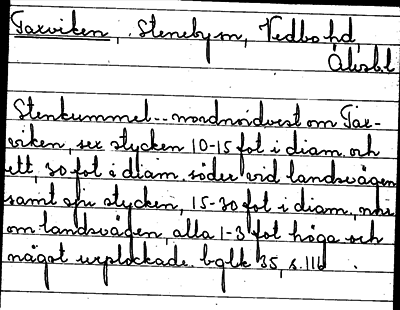 Taxviken, Steneby sn, Vedbo hd,
Älvsbl
Stenkummel.. nordnordvest om Tax-
viken, sex stycken 10-15 fot i diam. och
ett, 30 fot i diam. söder vid landsvägen
samt fyr stycken, 15-30 fot i diam, norr
om landsvägen, alla 1-3 fot höga och
något urplockade. bglk 35, s. 116.